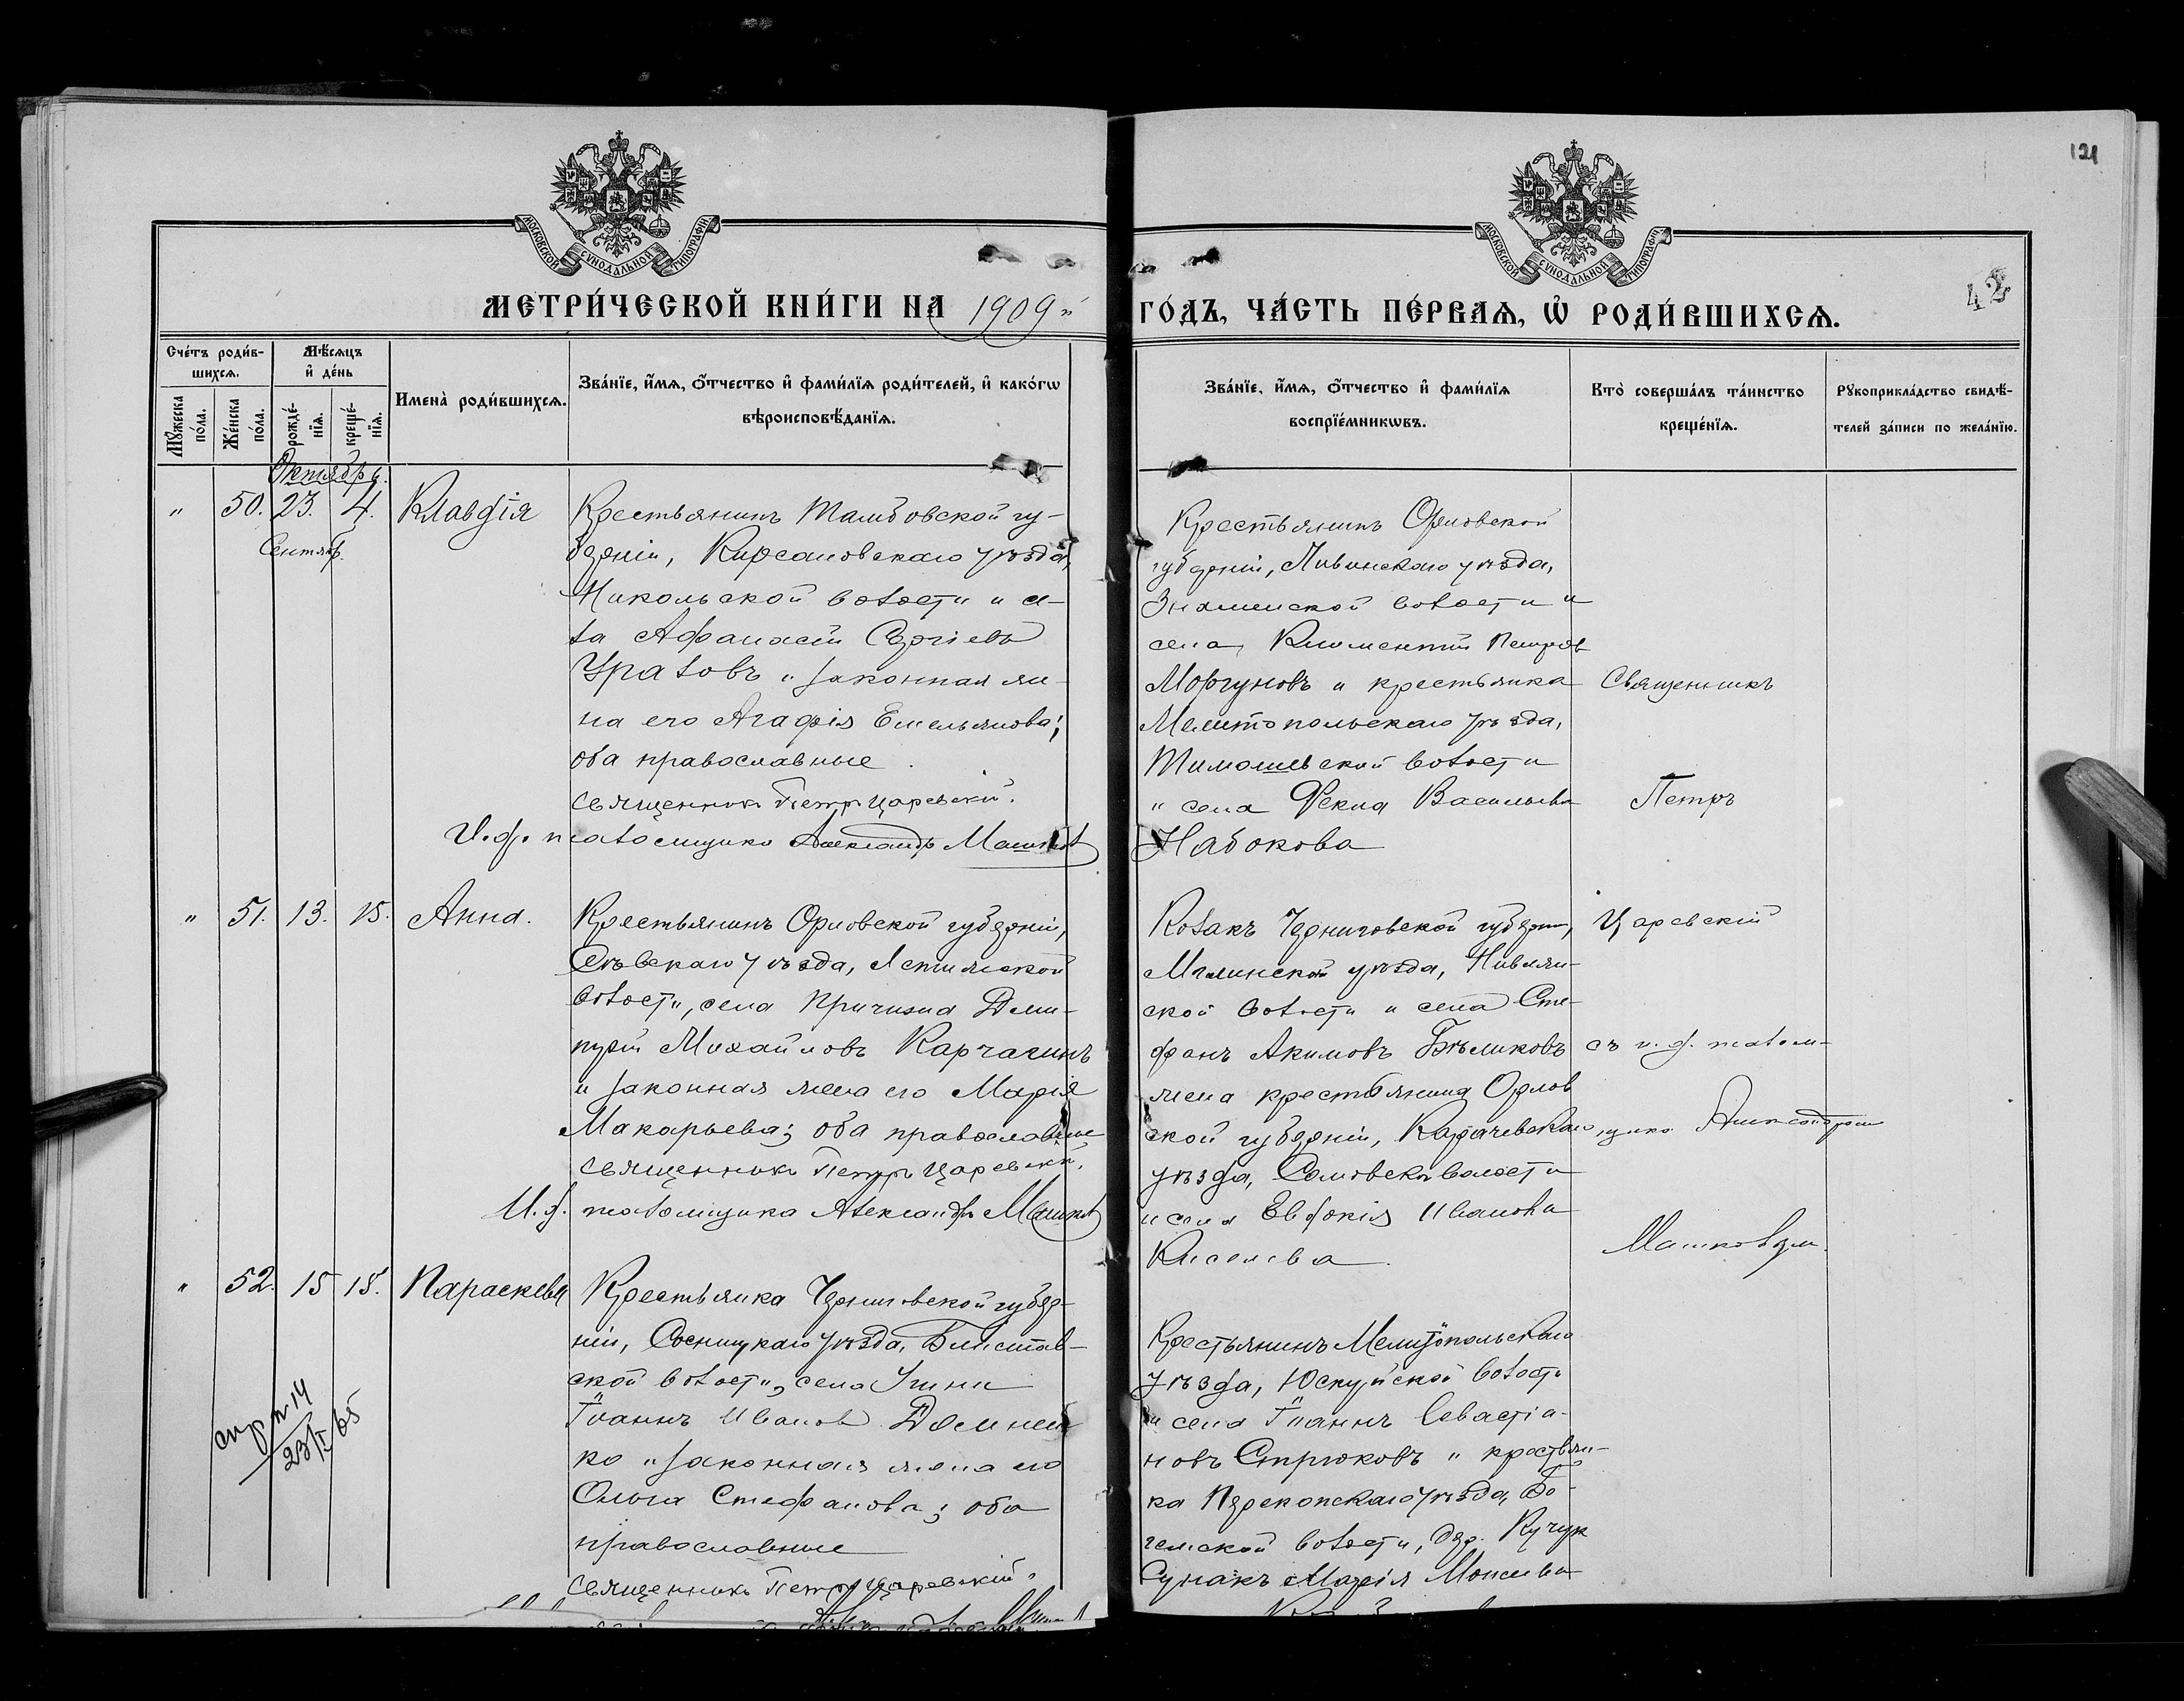 121
42
МОСКОВСКОЙ СУНОДАЛЬНОЙ ТИПОГРАФІИ
МОСКОВСКОЙ СУНОДАЛЬНОЙ ТИПОГРАФІИ
МЕТРИ́ЧЕСКОЙ КНИ́ГИ НА 1909
ГО́ДЪ, ЧА́СТЬ ПЕ́РВАѦ, Ѡ҆ РОДИ́ВШИХСѦ.
Сче́тъ роди́в-
шихсѧ.
Мꙋ́жеска по́ла.
Же́нска по́ла.
Мѣ́сѧцъ
и҆ де́нь
рожде́-
нїѧ.
креще́-
нїѧ.
Имена̀ роди́вшихсѧ.
Зва́нїе, и҆́мѧ, ѻ҆́тчество и҆ фами́лїѧ роди́телей, и҆ како́гѡ
вѣроисповѣ́данїѧ.
Зва́нїе, и҆́мѧ, ѻ҆́тчество и҆ фами́лїѧ
воспрїе́мникѡвъ.
Кто̀ соверша́лъ та́инство
креще́нїѧ.
Рꙋкоприкла́дство свидѣ́-
телей за́писи по жела́нїю.
Октябрь.
" 50. 23. 4. Клавдія
Сентяб.
Крестьянинъ Тамбовской гу-
берніи, Кирсановскаго уѣзда,
Никольской волости и се-
ла Афанасій Сергіевъ
Уразовъ и законная же-
на его Агафія Емельянова;
оба православные.
Священникъ Петръ Царевскій.
И. д. псаломщика Александръ Машков
Крестьянинъ Орловской
губерніи, Ливинскаго уѣзда,
Знаменской волости и
села, Климентій Петров
Моргуновъ и крестьянка
Мелитопольскаго уѣзда,
Тимошевской волости
и села Фекла Васильева
Набокова
Священникъ
Петръ
Царевскій
съ и. д. псалом-
щика Александром
Машковым.
" 51. 13. 15. Анна.
Крестьянинъ Орловской губерніи,
Сѣвскаго уѣзда,
волости, села Причижа Дими-
трій Михайловъ Карчагинъ
и законная жена его Марія
Макарьева; оба православные
Священникъ Петръ Царевскій.
И. д. псаломщика Александръ Машков
Козакъ Черниговской губерніи,
Мглинской уѣзда, Нивлян-
ской волости и села Сте-
фанъ Акимовъ Бѣликовъ
жена крестьянина Орлов
ской губерніи, Карачевскаго
уѣзда, волости
и села Евдокія Иванова
Киселева.
" 52. 15 18. Параскева
Крестьянка Черниговской губер-
ніи, Сосницкаго уѣзда, Блистов-
ской волости, села Ушни
Іоаннъ Иванов Доменей
ко и законная жена его
Ольга Стефанова; оба
православные
Священникъ Петръ Царевскій.
Крестьянинъ Мелитопольскаго
уѣзда, Юскуйской волости
и села Іоаннъ Севастіа-
новъ Стрюковъ и крестьян-
ка Перекопскаго уѣзда, Бо-
гемской волости, дер. Кучук
Сунакъ Марія Моисеева
14
23/I 65